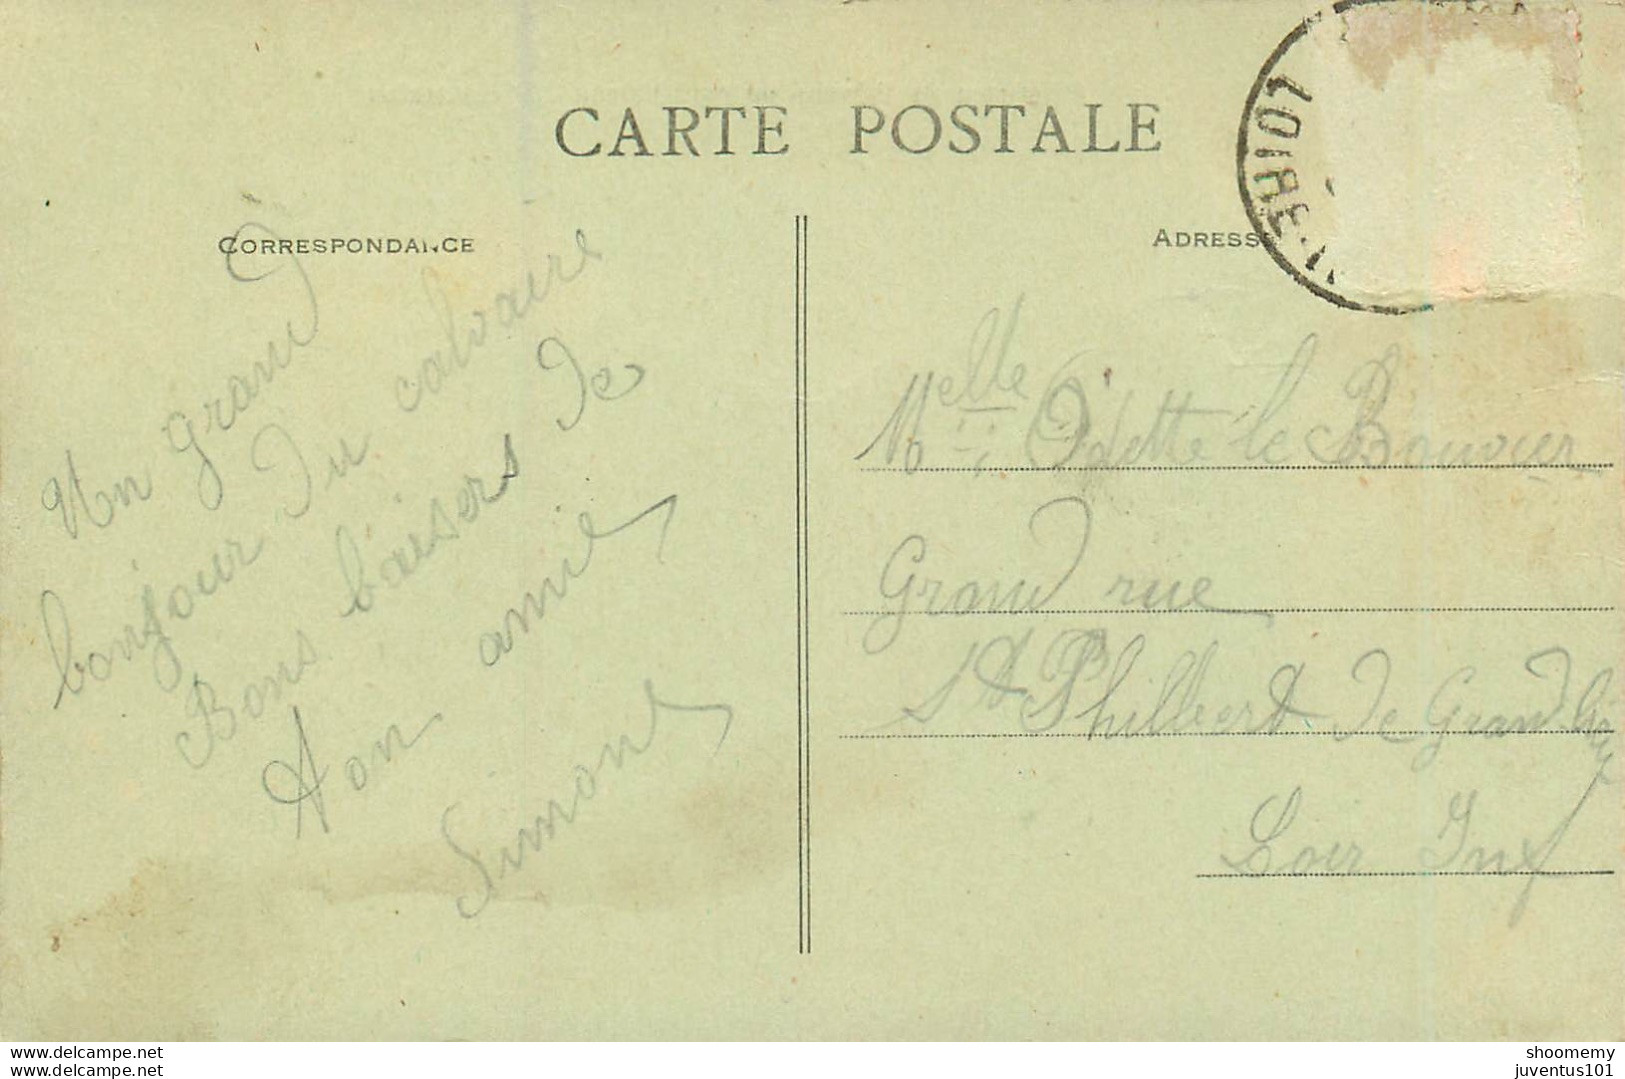 CARTE POSTALE
CORRESPONDANCE
ADRESSE
LOIRE
Un grand
bonjour du calvaire
Bons baisers de
ton amie
Simone
Melle Odette le Bouvier
Grand rue
St Philbert de Grand Lieu
Loir Inf
www.delcampe.net
juventus101
shoomemy
juventus101